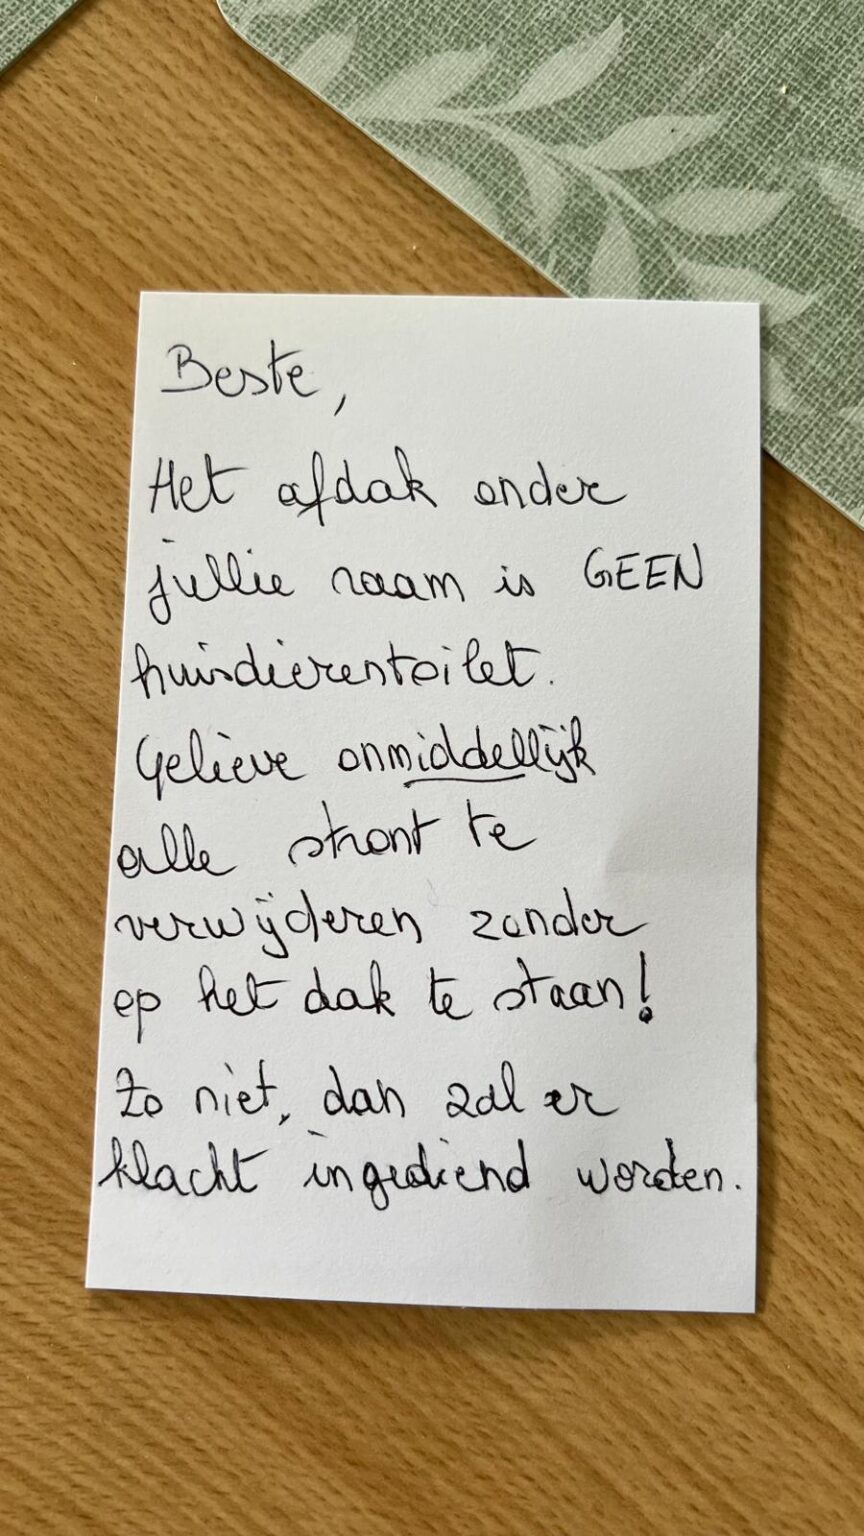 Beste,
Het afdak onder
jullie raam is GEEN
huisdierentoilet.
Gelieve onmiddellijk
alle stront te
verwijderen zonder
op het dak te staan!
Zo niet, dan zal er
klacht ingediend worden.